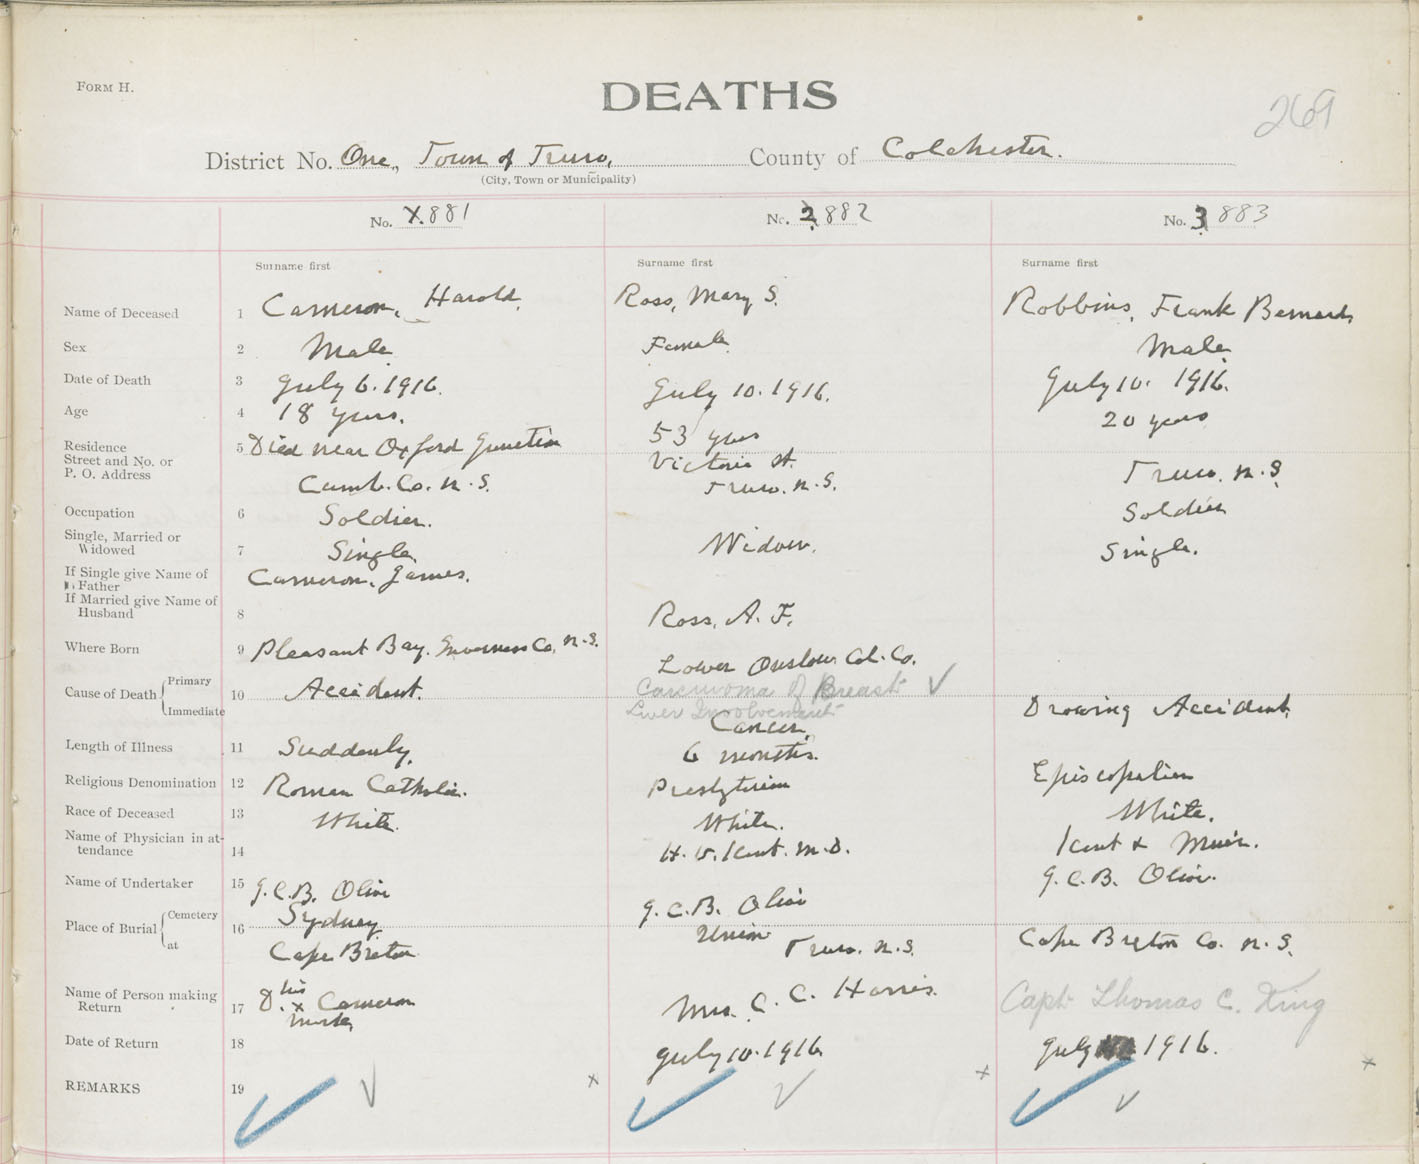 FORM H.
DEATHS
269
District No. One, Town of Truro, County of Colchester.
(City, Town or Municipality)
No. 1. 881
No. 2. 882
No. 3. 883
Surname first
Surname first
Surname first
Name of Deceased 1 Cameron, Harold. Ross, Mary S. Robbins, Frank Bernard
Sex 2 Male Female Male
Date of Death 3 July 6. 1916. July 10. 1916. July 10. 1916.
Age 4 18 years. 53 years 20 years
Residence 5 Died near Oxford Junction Victoria St.
Street and No. or
P. O. Address Cumb. Co. N.S. Truro. N.S. Truro. N.S.
Occupation 6 Soldier. Soldier
Single, Married or
Widowed 7 Single Widow. Single.
If Single give Name of Cameron, James.
Father
If Married give Name of
Husband 8 Ross, A. F.
Where Born 9 Pleasant Bay. Inverness Co. N.S. Lower Onslow Col. Co.
Cause of Death Primary 10 Accident. Carcinoma of Breast
Immediate Liver Involvement Drowing Accident
Cancer
Length of Illness 11 Suddenly. 6 months.
Religious Denomination 12 Roman Catholic. Presbyterian Episcopalian
Race of Deceased 13 White. White. White.
Name of Physician in at-
tendance 14 H. V. Kent. M.D. Kent & Muir.
Name of Undertaker 15 J.C.B. Olive J.C.B. Olive J.C.B. Olive.
Place of Burial Cemetery 16 Sydney Union
at Cape Breton Truro. N.S. Cape Breton Co. N.S.
Name of Person making his
Return 17 D. x Cameron Mrs. C. C. Harris. Capt Thomas C. King
mark
Date of Return 18 July 10. 1916 July 1916.
REMARKS 19 x x x